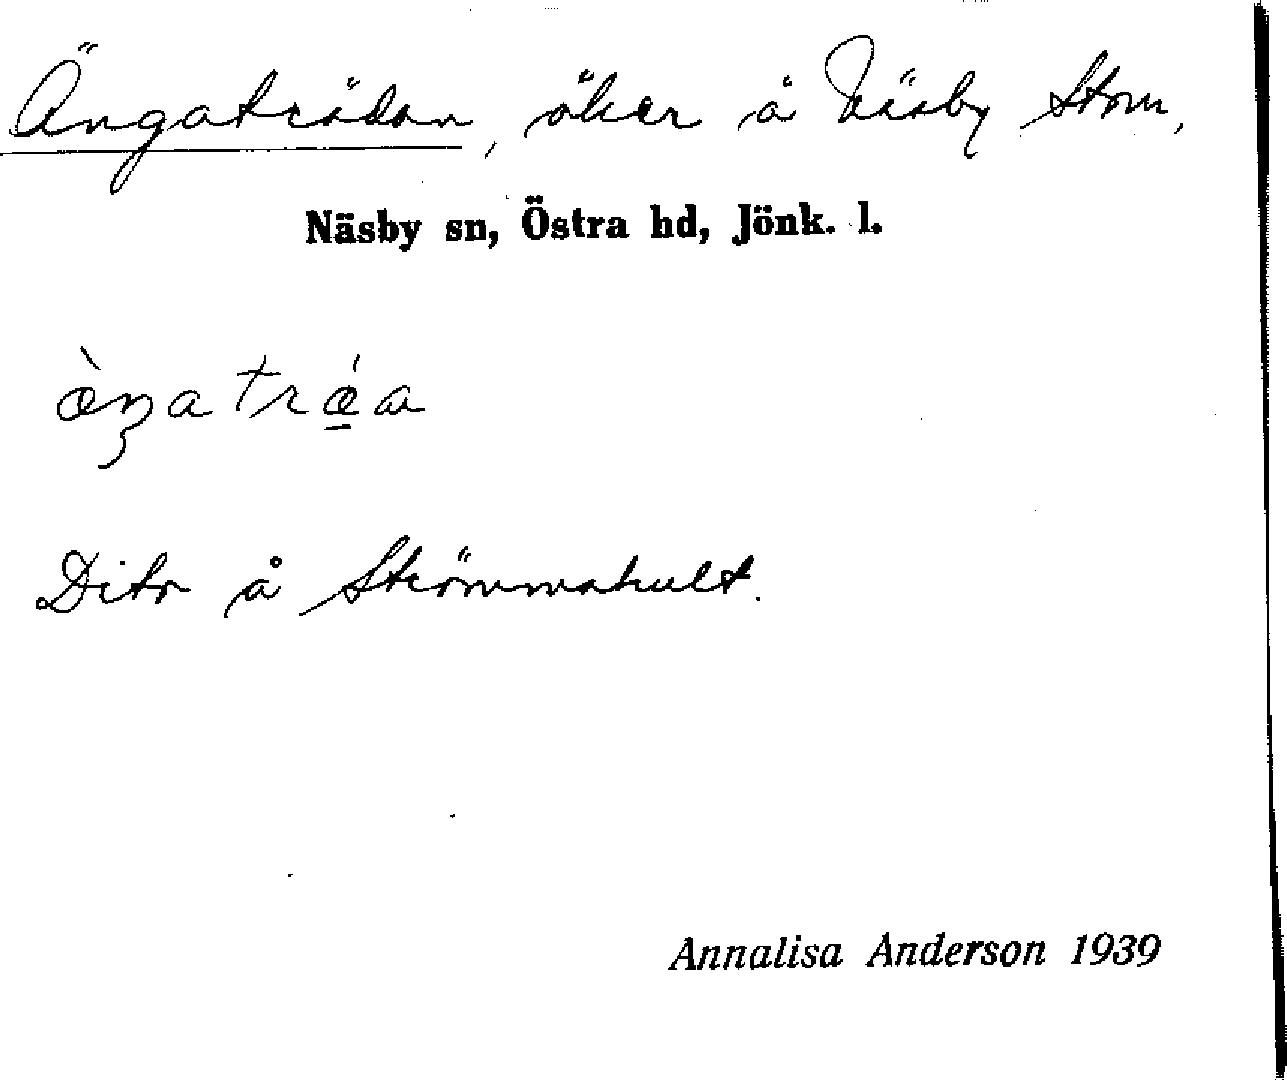 Ängaträdan, åker å Näsby Stom,
Näsby sn, Östra hd, Jönk. l.
Dito å Strömmahult.
Annalisa Anderson 1939